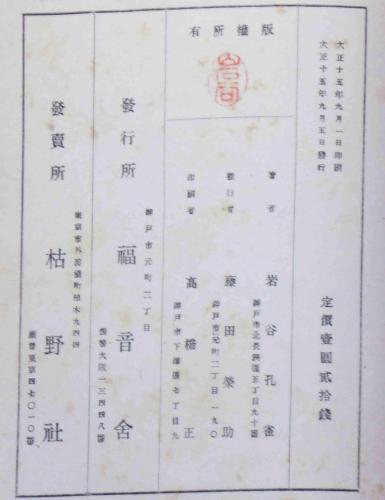 大正十五年九月一日印刷
大正十五年九月五日發行
定價壹圓貳拾錢
版權所有
著者 岩谷孔雀
神戸市北長狹通五丁目九十番
發行者 藤田榮助
神戸市元町二丁目一九〇
印刷者 高橋正
神戸市下澤通七丁目九
發行所 福音舍
神戸市元町二丁目
振替大阪一三四四八番
發賣所 枯野社
東京市外淀橋町柏木九四四
振替東京四七〇一〇番